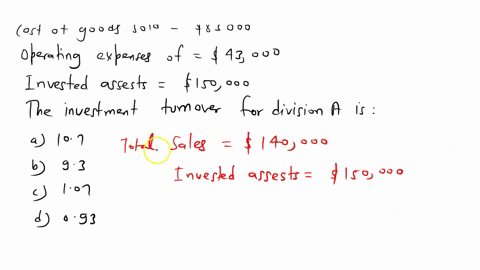 Cost of goods sold - $85000
Operating expenses of = $43,000
Invested assests = $150,000
The investment turnover for division A is :
a) 10.7
b) 9.3
c) 1.07
d) 0.93
Total Sales = $140,000
Invested assests = $150,000